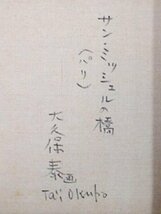 サン・ミッシェルの橋
(パリ)
大久保泰画
Tai Okubo